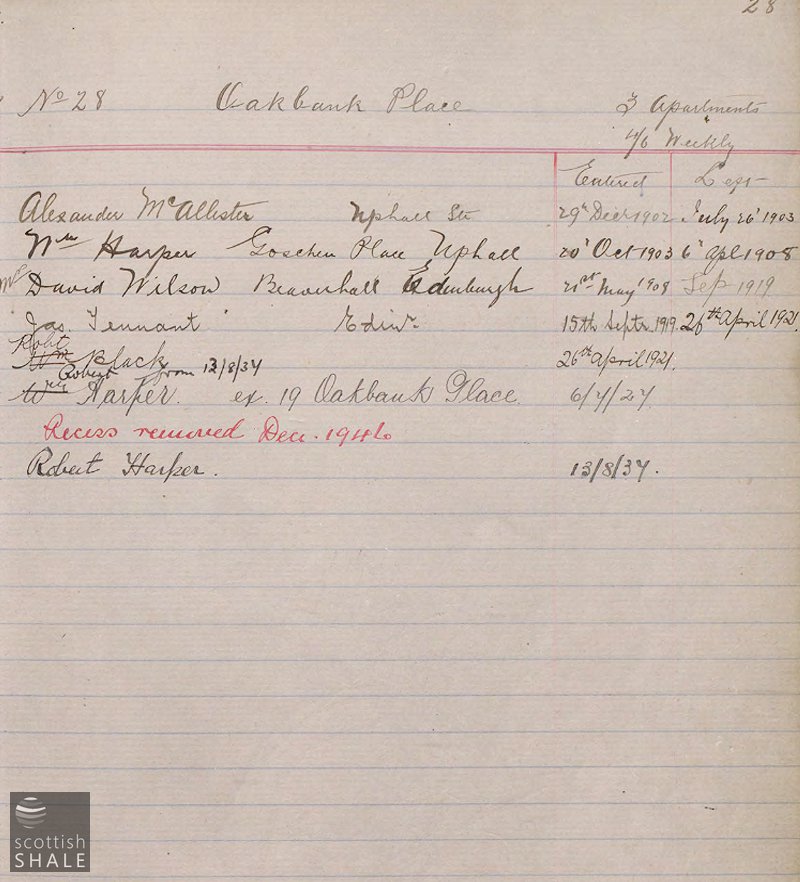 28
No 28 Oakbank Place 3 Apartments
4/6 Weekly
Entered Left
Alexander McAllister Uphall Stn 29th Decr 1902 July 26' 1903
Wm Harper Goschen Place Uphall 20' Oct 1903 6' Apl 1908
David Wilson Beaverhall Edinburgh 21st May 1908 Sep 1919
Jas. Tennant Edinr. 15th Septr. 1919. 26th April 1921.
Robt
Wm Black 26th April 1921.
Robert from 13/8/37
Wm Harper. ex. 19 Oakbank Place. 6/4/27
Recess removed Dec. 1946
Robert Harper. 13/8/37.
scottish
SHALE